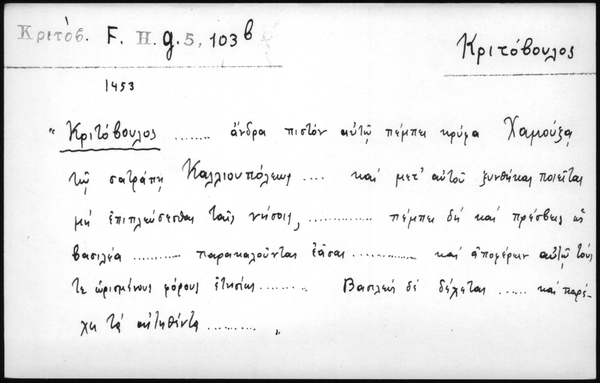 Κριτόβ. F. H. g. 5, 103 b
Κριτόβουλος
1453
"Κριτόβουλος ....... ἄνδρα πιστὸν αὐτῷ πέμπει κρύφα Χαμουζᾷ
τῷ σατράπῃ Καλλιουπόλεως .... καὶ μετ' αὐτοῦ ξυνθήκας ποιεῖται
μὴ ἐπιπλεῦσεσθαι ταῖς νήσοις, ............. πέμπει δὴ καὶ πρέσβεις ὡς
βασιλέα ........... παρακαλοῦντας ἐᾶσαι .............. καὶ ἀποφέρειν αὐτῷ τούς
τε ὡρισμένους φόρους ἐτησίως .......... Βασιλεὺς δὲ δέχεται ...... καὶ παρέ-
χει τὰ αἰτηθέντα .......... "